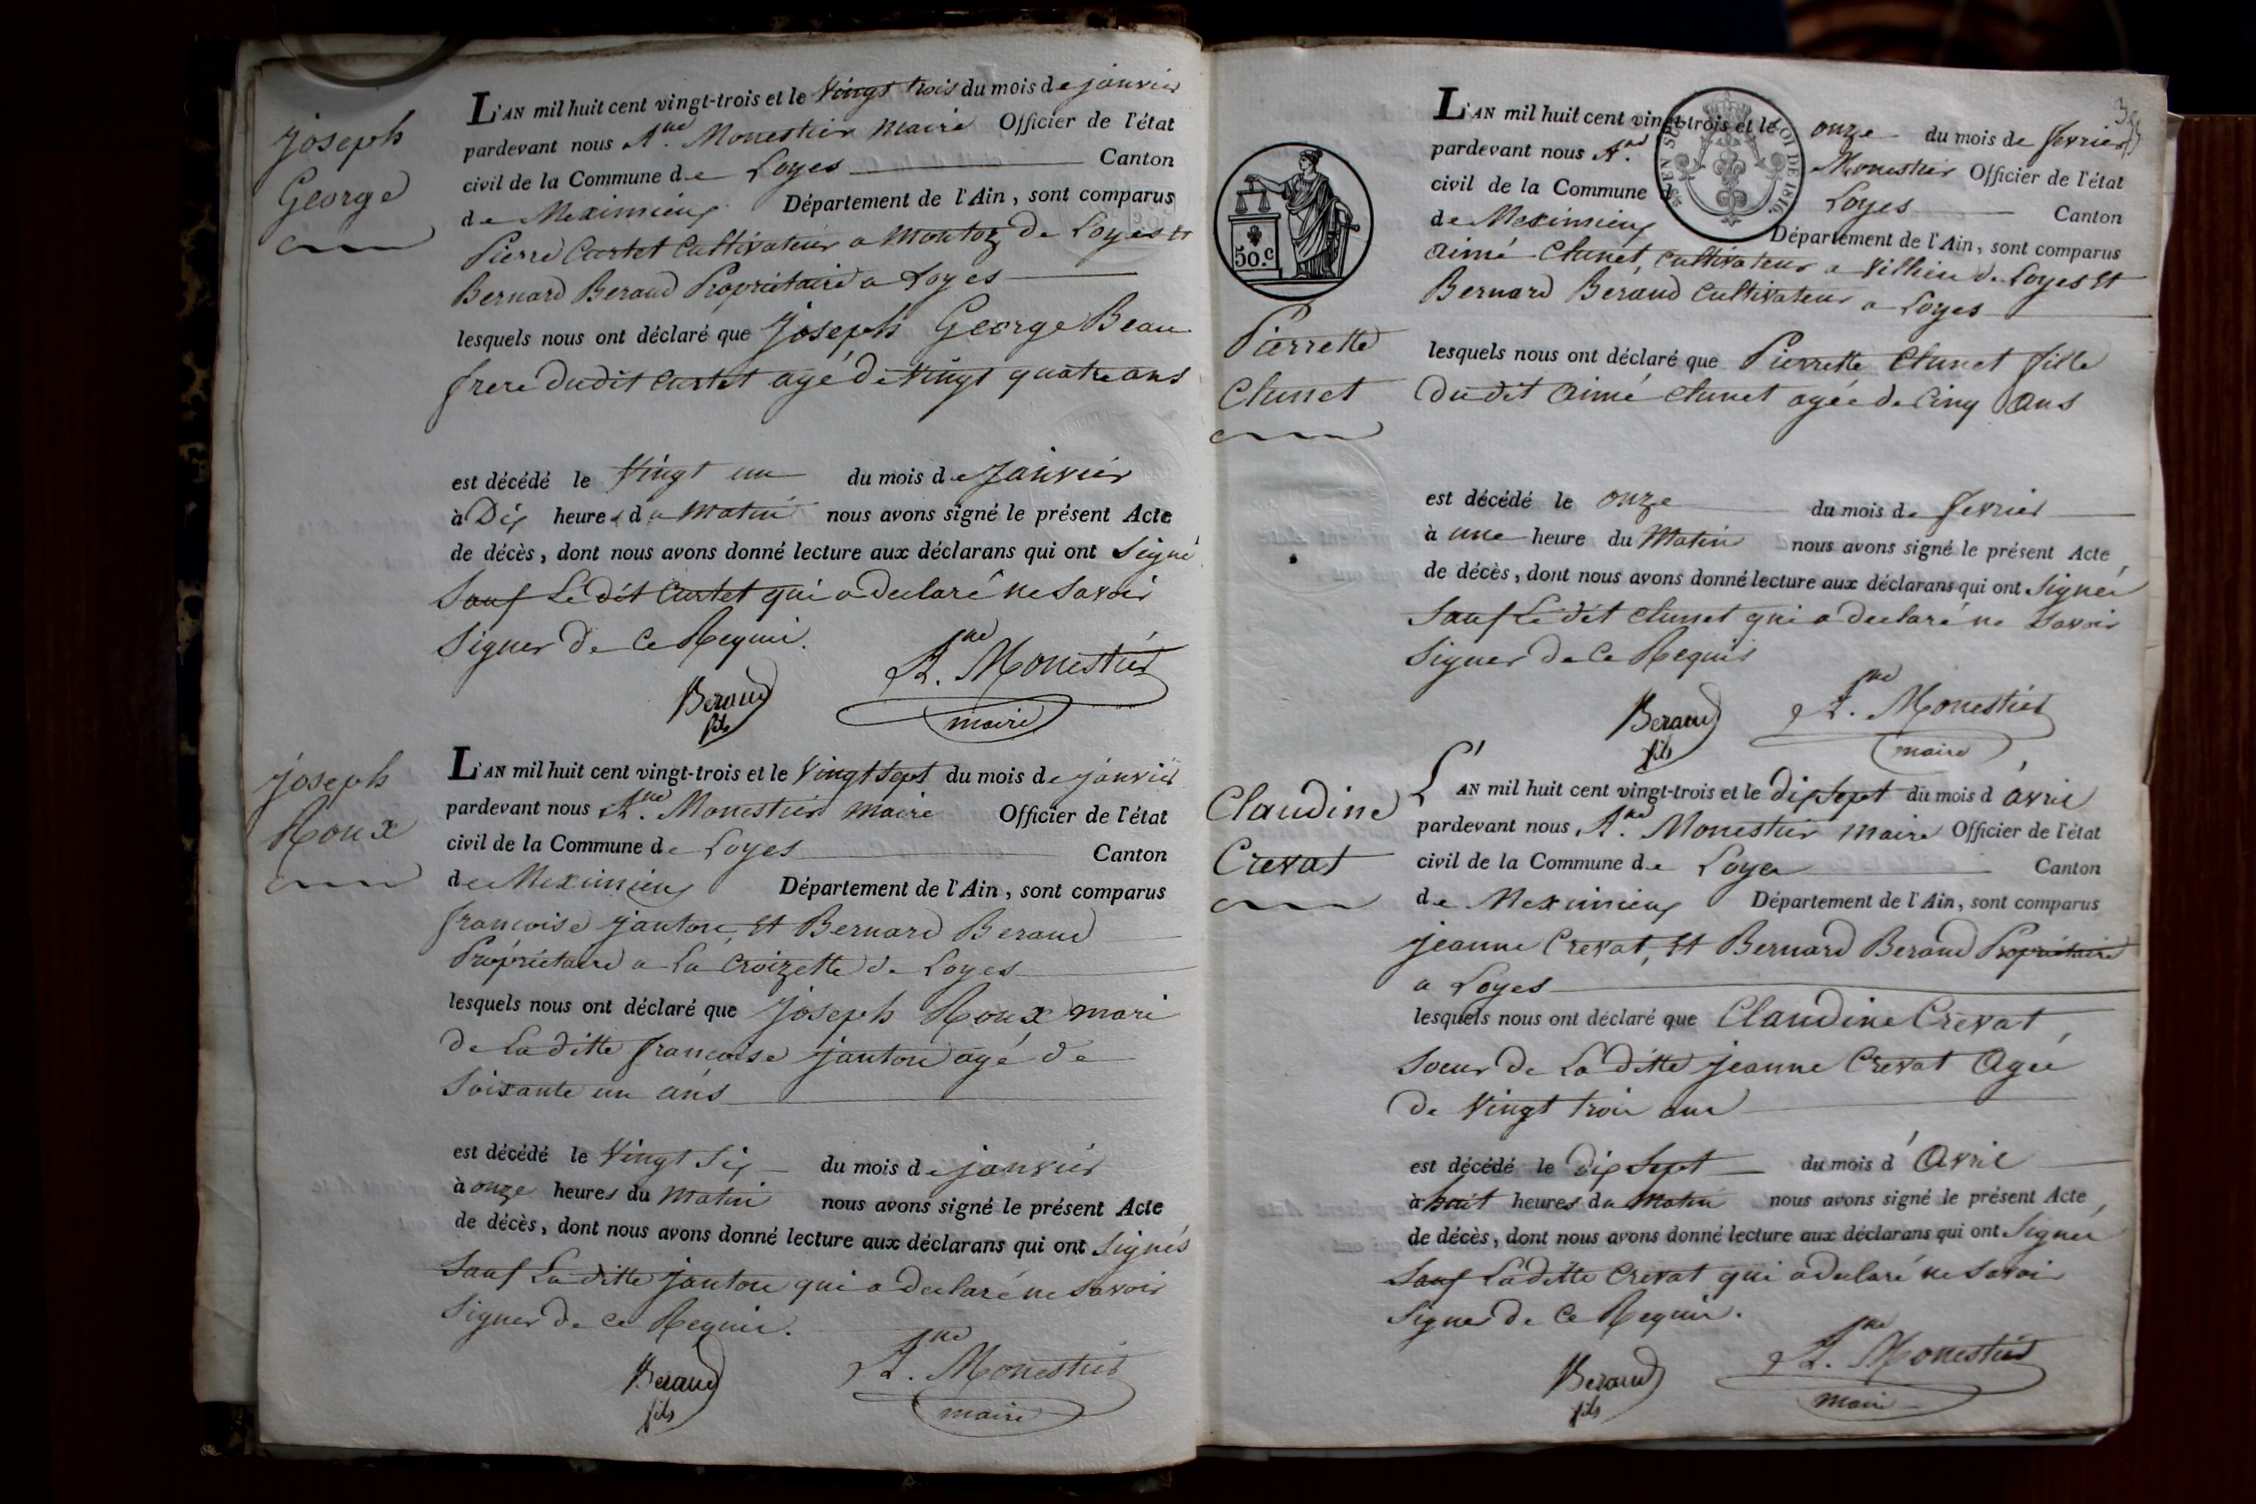 Joseph
George
L'AN mil huit cent vingt-trois et le Vingt trois du mois de janvier
pardevant nous A.ne Monestier maire Officier de l'état
civil de la Commune de Loyes Canton
de Meximieux Département de l'Ain, sont comparus
Pierre Cartet Cultivateur a Montoz de Loyes et
Bernard Beraud Propriétaire a Loyes
lesquels nous ont déclaré que Joseph George Beau
frere dudit Cartet agé de Vingt quatre ans
est décédé le Vingt un du mois de Janvier
à Dix heures du Matin nous avons signé le présent Acte
de décès, dont nous avons donné lecture aux déclarans qui ont Signé
Sauf Le dit Cartet qui a declaré ne Savoir
Signer de ce Requi.
Beraud
fils
A.ne Monestier
maire
Joseph
Roux
L'AN mil huit cent vingt-trois et le Vingt Sept du mois de janvier
pardevant nous A.ne Monestier maire Officier de l'état
civil de la Commune de Loyes Canton
de Meximieux Département de l'Ain, sont comparus
francoise janton, et Bernard Beraud
Propriétaire a La Croizette de Loyes
lesquels nous ont déclaré que Joseph Roux mari
de La ditte francoise janton agé de
Soixante un ans
est décédé le Vingt Six du mois de janvier
à onze heures du Matin nous avons signé le présent Acte
de décès, dont nous avons donné lecture aux déclarans qui ont Signés
Sauf La ditte janton qui a declaré ne Savoir
Signer de ce Requis.
Beraud
fils
A.ne Monestier
maire
50.c
LOI DE 1816
Pierrette
Chunet
L'AN mil huit cent vingt-trois et le onze du mois de fevrier
pardevant nous A.ne Monestier Officier de l'état
civil de la Commune de Loyes Canton
de Meximieux Département de l'Ain, sont comparus
aimé Chunet, Cultivateur a Villieu de Loyes et
Bernard Beraud Cultivateur a Loyes
lesquels nous ont déclaré que Pierrette Chunet fille
du dit aimé Chunet agée de Cinq ans
est décédé le onze du mois de fevrier
à une heure du Matin nous avons signé le présent Acte
de décès, dont nous avons donné lecture aux déclarans qui ont Signés
Sauf Le dit Chunet qui a declaré ne Savoir
Signer de ce Requis
Beraud
fils
A.ne Monestier
maire
Claudine
Crevat
L'AN mil huit cent vingt-trois et le dix Sept du mois d'avril
pardevant nous A.ne Monestier maire Officier de l'état
civil de la Commune de Loyes Canton
de Meximieux Département de l'Ain, sont comparus
jeanne Crevat, et Bernard Beraud Propriétaire
a Loyes
lesquels nous ont déclaré que Claudine Crevat
Soeur de La ditte jeanne Crevat Agée
de Vingt trois ans
est décédé le dix Sept du mois d'Avril
à huit heures du Matin nous avons signé le présent Acte
de décès, dont nous avons donné lecture aux déclarans qui ont Signés
Sauf Laditte Crevat qui a declaré ne Savoir
Signer de ce Requis.
Beraud
fils
A.ne Monestier
maire